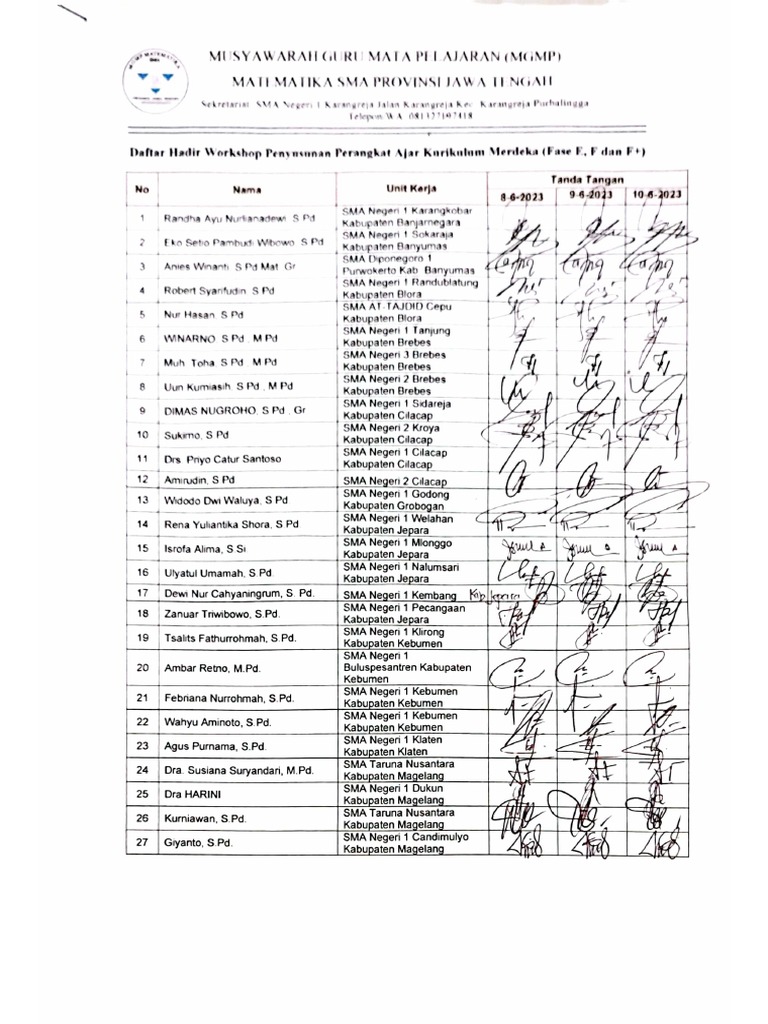 MUSYAWARAH GURU MATA PELAJARAN (MGMP)
MATEMATIKA SMA PROVINSI JAWA TENGAH
Sekretariat SMA Negeri 1 Karangreja Jalan Karangreja Kec. Karangreja Purbalingga
Telepon/WA 081327197418
Daftar Hadir Workshop Penyusunan Perangkat Ajar Kurikulum Merdeka (Fase E, F dan F+)
No Nama Unit Kerja Tanda Tangan
8-6-2023 9-6-2023 10-6-2023
1 Randha Ayu Nurlianadewi, S.Pd SMA Negeri 1 Karangkobar
Kabupaten Banjarnegara
2 Eko Setio Pambudi Wibowo, S.Pd SMA Negeri 1 Sokaraja
Kabupaten Banyumas
3 Anies Winanti, S.Pd.Mat. Gr SMA Diponegoro 1
Purwokerto Kab. Banyumas
4 Robert Syarifudin, S.Pd SMA Negeri 1 Randublatung
Kabupaten Blora
5 Nur Hasan, S.Pd SMA AT-TAJDID Cepu
Kabupaten Blora
6 WINARNO, S.Pd., M.Pd SMA Negeri 1 Tanjung
Kabupaten Brebes
7 Muh. Toha, S.Pd., M.Pd SMA Negeri 3 Brebes
Kabupaten Brebes
8 Uun Kurniasih, S.Pd., M.Pd SMA Negeri 2 Brebes
Kabupaten Brebes
9 DIMAS NUGROHO, S.Pd., Gr SMA Negeri 1 Sidareja
Kabupaten Cilacap
10 Sukirno, S.Pd SMA Negeri 2 Kroya
Kabupaten Cilacap
11 Drs. Priyo Catur Santoso SMA Negeri 1 Cilacap
Kabupaten Cilacap
12 Amirudin, S.Pd SMA Negeri 2 Cilacap
13 Widodo Dwi Waluya, S.Pd SMA Negeri 1 Godong
Kabupaten Grobogan
14 Rena Yuliantika Shora, S.Pd SMA Negeri 1 Welahan
Kabupaten Jepara
15 Isrofa Alima, S.Si SMA Negeri 1 Mlonggo
Kabupaten Jepara
16 Ulyatul Umamah, S.Pd. SMA Negeri 1 Nalumsari
Kabupaten Jepara
17 Dewi Nur Cahyaningrum, S. Pd. SMA Negeri 1 Kembang Kab Jepara
18 Zanuar Triwibowo, S.Pd. SMA Negeri 1 Pecangaan
Kabupaten Jepara
19 Tsalits Fathurrohmah, S.Pd. SMA Negeri 1 Klirong
Kabupaten Kebumen
20 Ambar Retno, M.Pd. SMA Negeri 1
Buluspesantren Kabupaten
Kebumen
21 Febriana Nurrohmah, S.Pd. SMA Negeri 1 Kebumen
Kabupaten Kebumen
22 Wahyu Aminoto, S.Pd. SMA Negeri 1 Kebumen
Kabupaten Kebumen
23 Agus Purnama, S.Pd. SMA Negeri 1 Klaten
Kabupaten Klaten
24 Dra. Susiana Suryandari, M.Pd. SMA Taruna Nusantara
Kabupaten Magelang
25 Dra HARINI SMA Negeri 1 Dukun
Kabupaten Magelang
26 Kurniawan, S.Pd. SMA Taruna Nusantara
Kabupaten Magelang
27 Giyanto, S.Pd. SMA Negeri 1 Candimulyo
Kabupaten Magelang